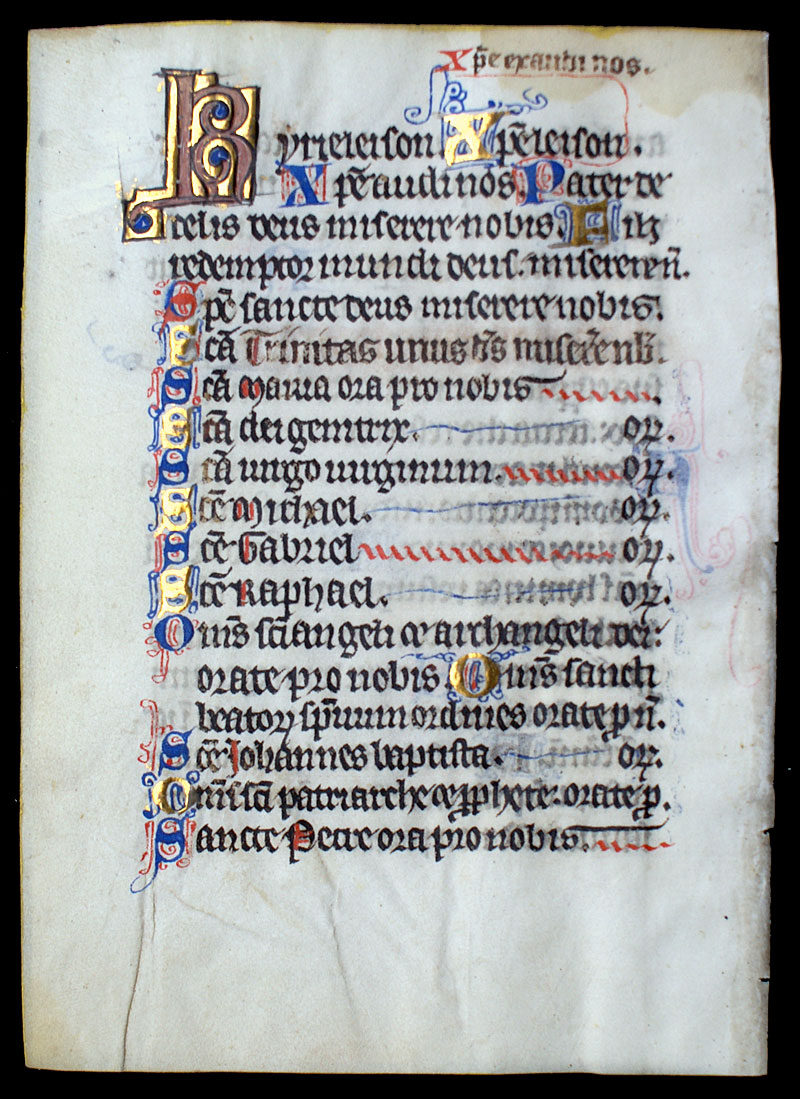 Xp̄e exaudi nos.
Kyrieleison Xp̄eleison.
Xp̄e audi nos. Pater de
celis deus miserere nobis. Fili
redemptor mundi deus. miserere n̄.
Spē sancte deus miserere nobis.
Scā Trinitas unus ds̄ miserēnb̄.
Scā Maria ora pro nobis
Scā dei genitrix. or̄p.
Scā uirgo uirginum. or̄p.
Scē Michael. or̄p.
Scē Gabriel or̄p.
Scē Raphael. or̄p.
Om̄s sc̄i angeli et archangeli dei:
orate pro nobis. Om̄s sancti
beatoꝝ sp̄uum ordines orate p n̄.
Scē Johannes baptista. or̄p.
Om̄s sc̄i patriarche et ꝓphete. orate p̱.
Sancte Petre ora pro nobis.